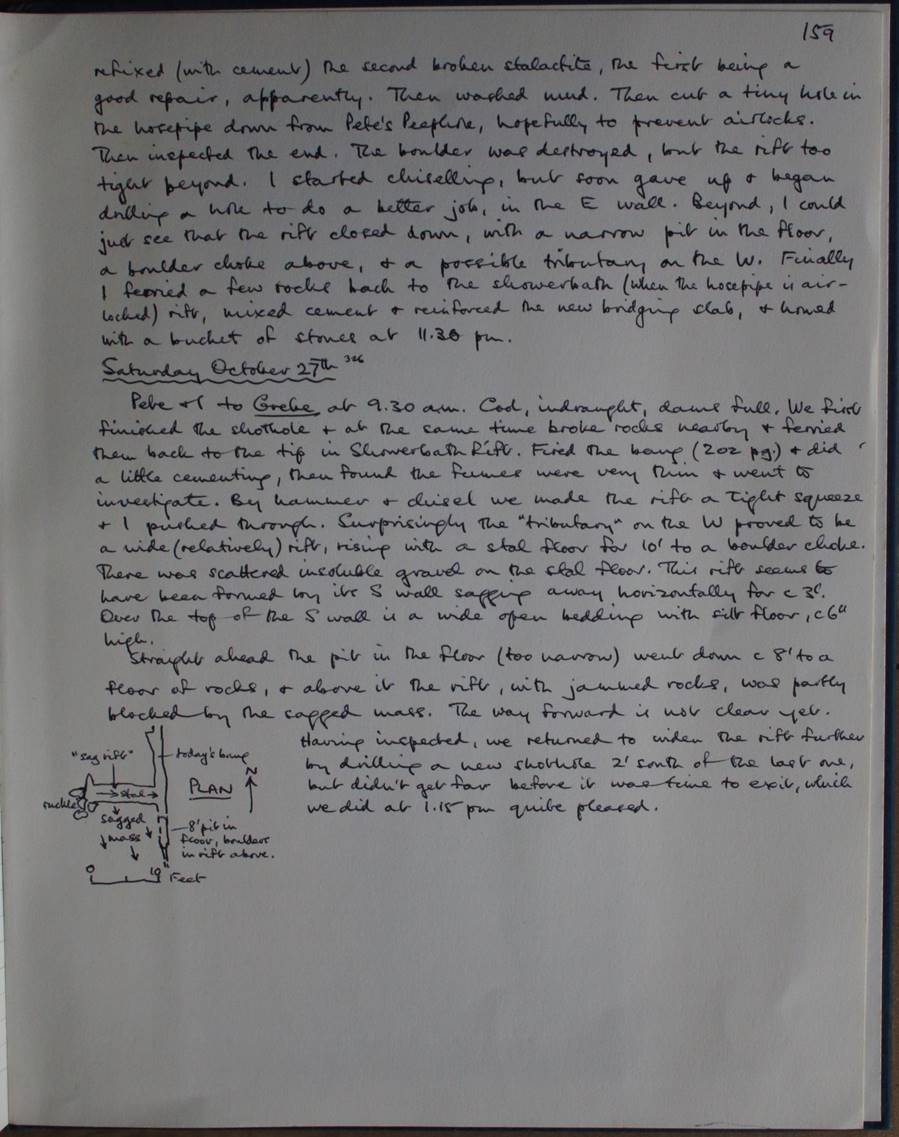 159
refixed (with cement) the second broken stalactite, the first being a
good repair, apparently. Then washed mud. Then cut a tiny hole in
the hosepipe down from Pete's Peephole, hopefully to prevent airlocks.
Then inspected the end. The boulder was destroyed, but the rift too
tight beyond. I started chiselling, but soon gave up & began
drilling a hole to do a better job, in the E wall. Beyond, I could
just see that the rift closed down, with a narrow pit in the floor,
a boulder choke above, & a possible tributary on the W. Finally
I ferried a few rocks back to the showerbath (when the hosepipe is air-
locked) rift, mixed cement & reinforced the new bridging slab, & homed
with a bucket of stones at 11.30 pm.
Saturday October 27th 326
Pete & I to Grebe at 9.30 a.m. Cod, indraught, dams full. We first
finished the shothole & at the same time broke rocks nearby & ferried
them back to the tip in Showerbath Rift. Fired the bang (2oz pg.) & did
a little cementing, then found the fumes were very thin & went to
investigate. By hammer & chisel we made the rift a tight squeeze
& I pushed through. Surprisingly the "tributary" on the W proved to be
a wide (relatively) rift, rising with a stal floor for 10' to a boulder choke.
There was scattered insoluble gravel on the stal floor. This rift seems to
have been formed by its S wall sagging away horizontally for c 3'.
Over the top of the S wall is a wide open bedding with silt floor, c6"
high.
Straight ahead the pit in the floor (too narrow) went down c 8' to a
floor of rocks, & above it the rift, with jammed rocks, was partly
blocked by the sagged mass. The way forward is not clear yet.
Having inspected, we returned to widen the rift further
by drilling a new shothole 2' south of the last one,
but didn't get far before it was time to exit, which
we did at 1.15 pm quite pleased.
"sag rift"
today's bang
PLAN
N
stal
ruckle
sagged
mass
8' pit in
floor, boulders
in rift above.
0 10 Feet